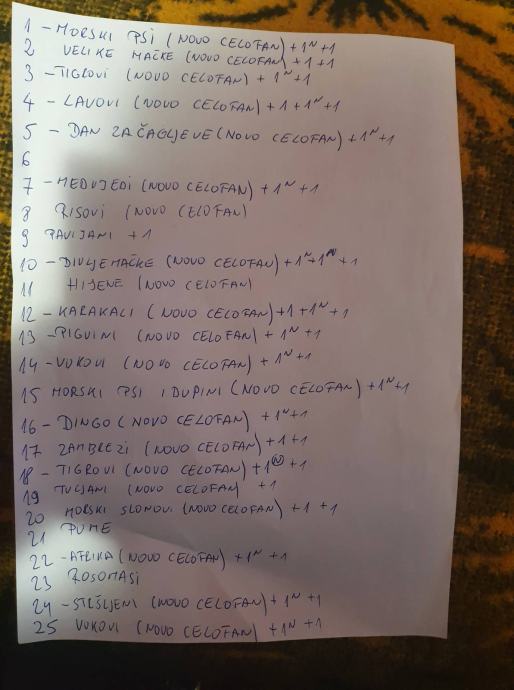 1 - MORSKI PSI (NOVO CELOFAN) + 1N + 1
2 VELIKE MAČKE (NOVO CELOFAN) + 1 + 1
3 - TIGROVI (NOVO CELOFAN) + 1N + 1
4 - LAVOVI (NOVO CELOFAN) + 1 + 1N + 1
5 - DAN ZA ČAGLJEVE (NOVO CELOFAN) + 1N + 1
6
7 - MEDVJEDI (NOVO CELOFAN) + 1N + 1
8 RISOVI (NOVO CELOFAN)
9 PAVIJANI + 1
10 - DIVLJE MAČKE (NOVO CELOFAN) + 1N + 1N + 1
11 HIJENE (NOVO CELOFAN)
12 - KARAKALI (NOVO CELOFAN) + 1 + 1N + 1
13 - PIGVINI (NOVO CELOFAN) + 1N + 1
14 - VUKOVI (NOVO CELOFAN) + 1N + 1
15 MORSKI PSI I DUPINI (NOVO CELOFAN) + 1N + 1
16 - DINGO (NOVO CELOFAN) + 1N + 1
17 ZAMBEZI (NOVO CELOFAN) + 1 + 1
18 - TIGROVI (NOVO CELOFAN) + 1N + 1
19 TULJANI (NOVO CELOFAN) + 1
20 MORSKI SLONOVI (NOVO CELOFAN) + 1 + 1
21 PUME
22 - AFRIKA (NOVO CELOFAN) + 1N + 1
23 ROSOMASI
24 - STRŠLJENI (NOVO CELOFAN) + 1N + 1
25 VUKOVI (NOVO CELOFAN) + 1N + 1